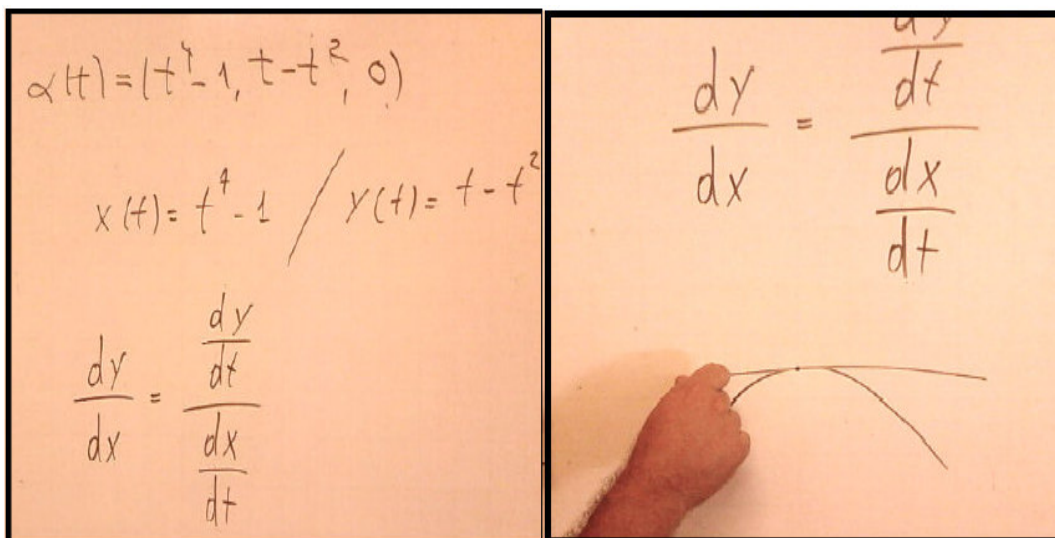 α(t) = (t⁴-1, t-t², 0)
x(t) = t⁴-1 / y(t) = t-t²
dy/dx = (dy/dt)/(dx/dt)
dy/dx = (dy/dt)/(dx/dt)